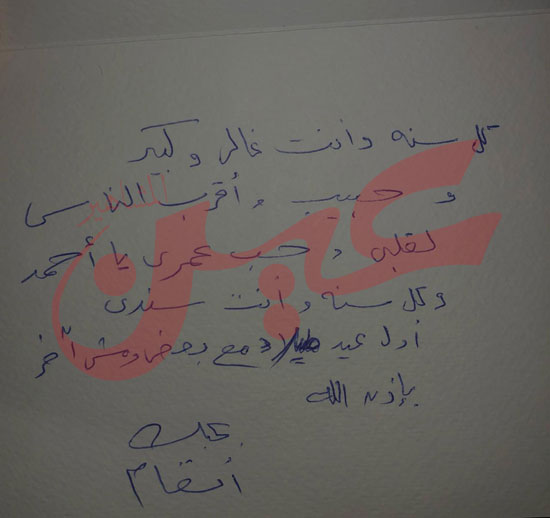 كل سنه وانت غالى وكبير
و حبيب و أقرب الناس
لقلبى و حب عمرى يا أحمد
وكل سنه وأنت سندى
أول عيد ميلاد مع بعض ومش آخر
بإذن الله
بحبك
أنغام
عين